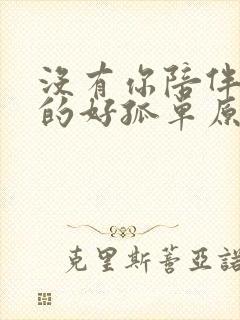 沒有你陪伴
的好孤單原
克里斯蒂亞諾